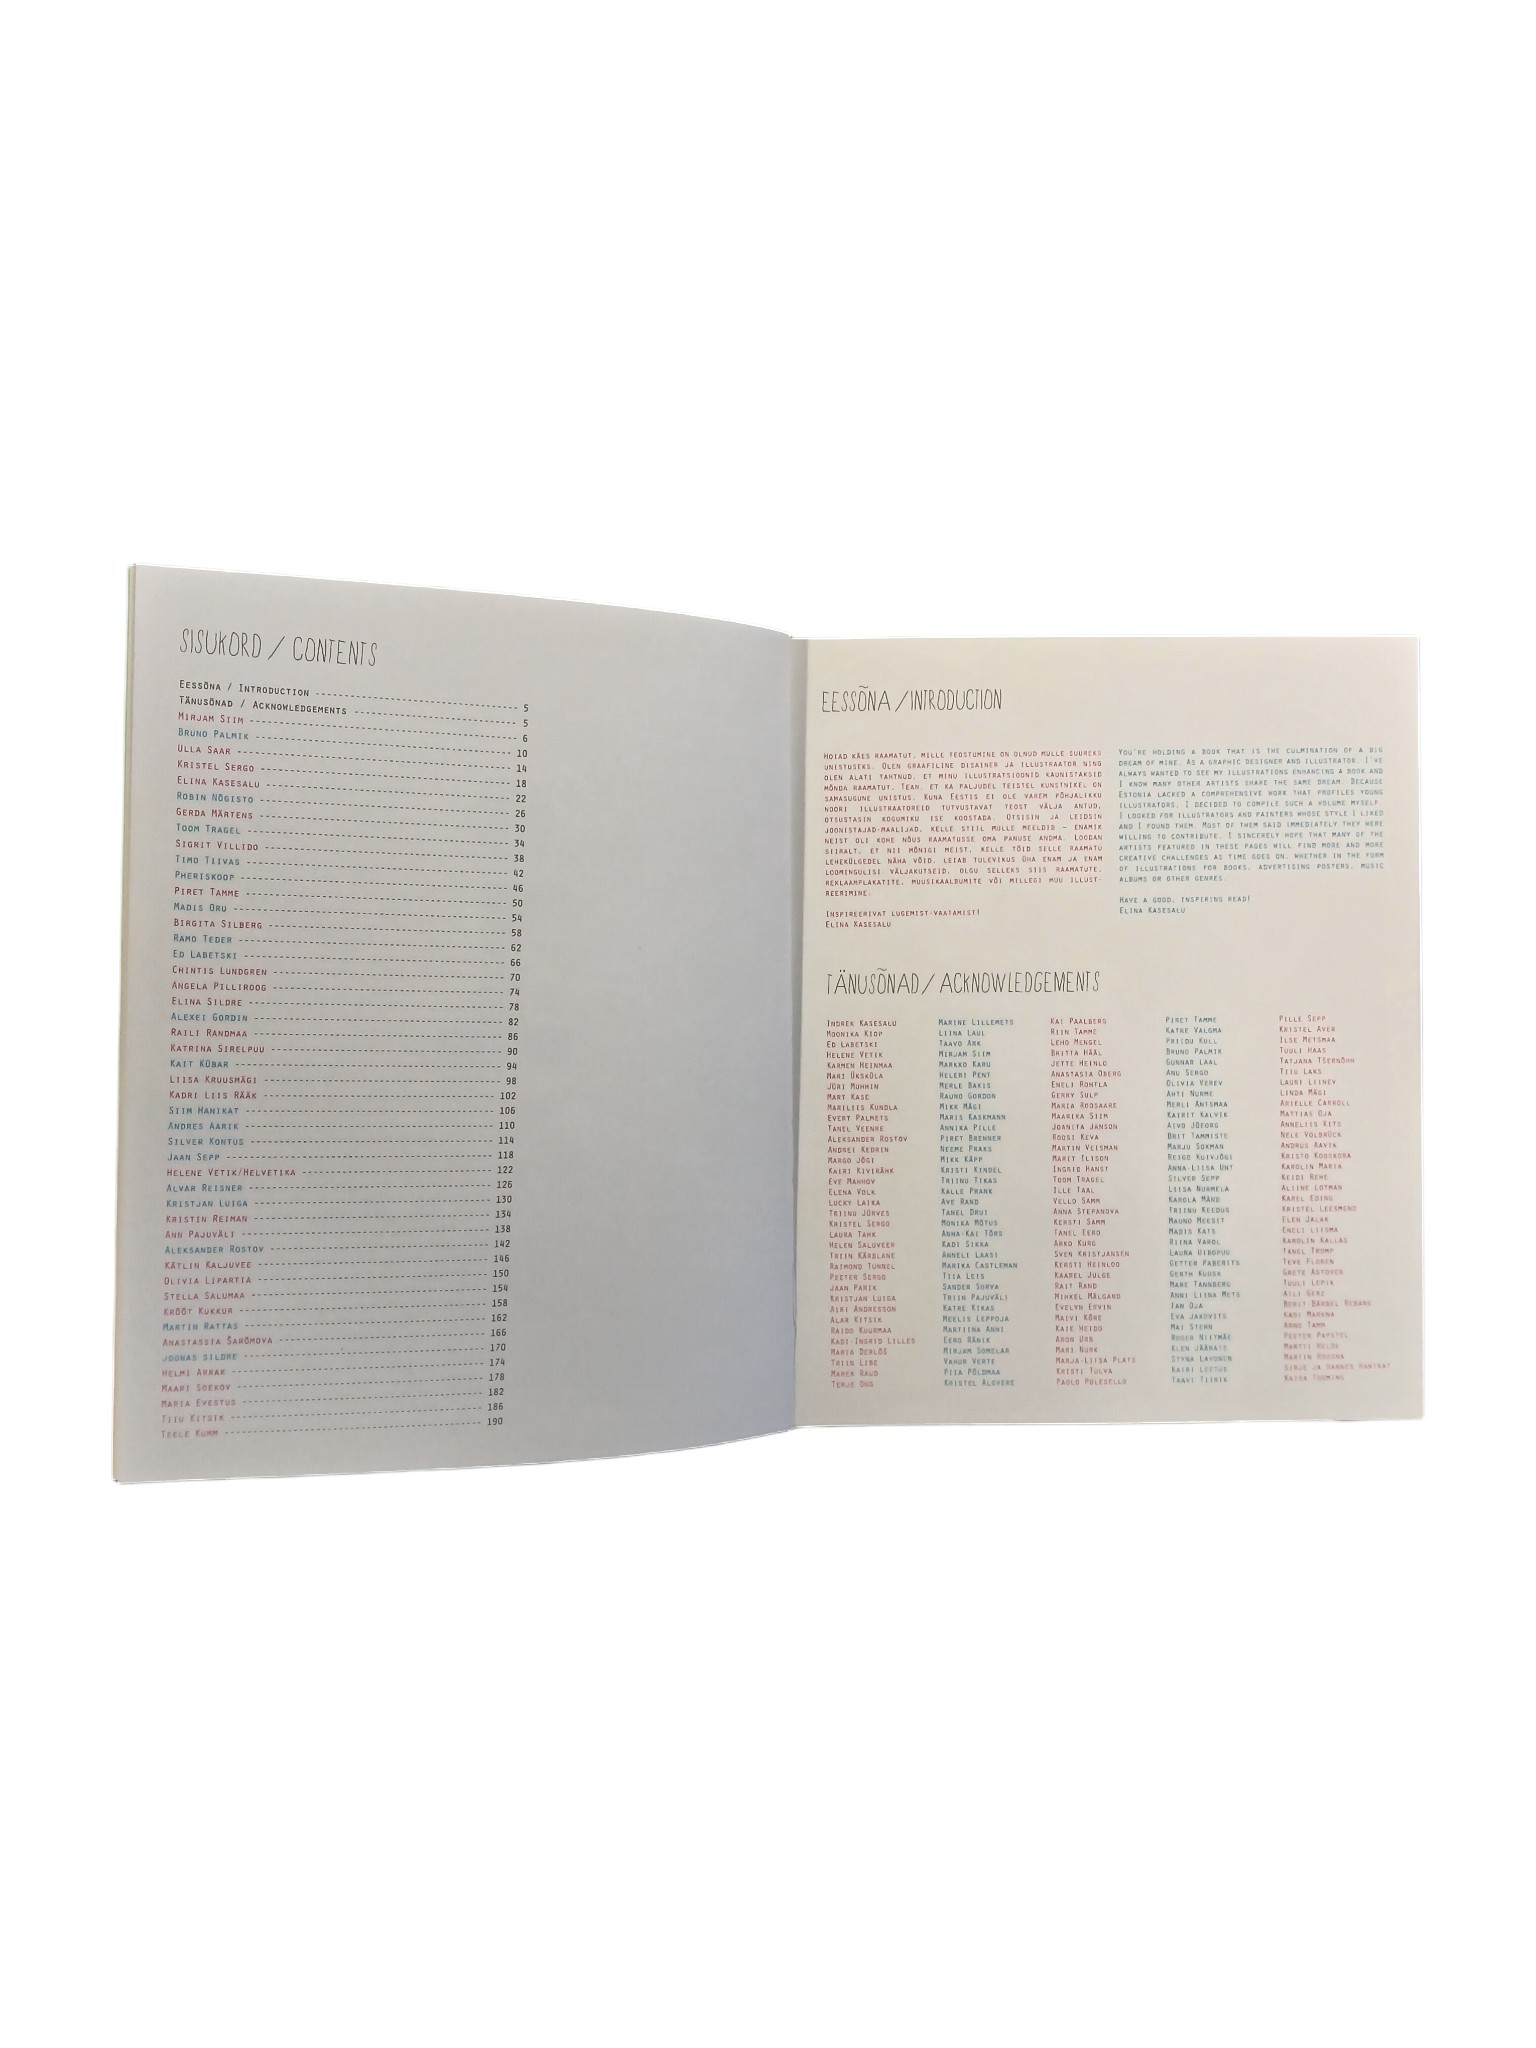 SISUKORD / CONTENTS
EESSÕNA / INTRODUCTION 5
TÄNUSÕNAD / ACKNOWLEDGEMENTS 5
MIRJAM SIIM 6
BRUNO PALMIK 10
ULLA SAAR 14
KRISTEL SERGO 18
ELINA KASESALU 22
ROBIN NÕGISTO 26
GERDA MÄRTENS 30
TOOM TRAGEL 34
SIGRIT VILLIDO 38
TIMO TIIVAS 42
PHERISKOOP 46
PIRET TAMME 50
MADIS ORU 54
BIRGITA SILBERG 58
RAMO TEDER 62
ED LABETSKI 66
CHINTIS LUNDGREN 70
ANGELA PILLIROOG 74
ELINA SILDRE 78
ALEXEI GORDIN 82
RAILI RANDMAA 86
KATRINA SIRELPUU 90
KAIT KÜBAR 94
LIISA KRUUSMÄGI 98
KADRI LIIS RÄÄK 102
SIIM HANIKAT 106
ANDRES AARIK 110
SILVER KONTUS 114
JAAN SEPP 118
HELENE VETIK/HELVETIKA 122
ALVAR REISNER 126
KRISTJAN LUIGA 130
KRISTIN REIMAN 134
ANN PAJUVÄLI 138
ALEKSANDER ROSTOV 142
KÄTLIN KALJUVEE 146
OLIVIA LIPARTIA 150
STELLA SALUMAA 154
KRÕÕT KUKKUR 158
MARTIN RATTAS 162
ANASTASSIA ŠARÕMOVA 166
JOONAS SILDRE 170
HELMI ARRAK 174
MAARI SOEKOV 178
MARIA EVESTUS 182
TIIU KITSIK 186
TEELE KUMM 190
EESSÕNA / INTRODUCTION
HOIAD KÄES RAAMATUT, MILLE TEOSTUMINE ON OLNUD MULLE SUUREKS
UNISTUSEKS. OLEN GRAAFILINE DISAINER JA ILLUSTRAATOR NING
OLEN ALATI TAHTNUD, ET MINU ILLUSTRATSIOONID KAUNISTAKSID
MÕNDA RAAMATUT. TEAN, ET KA PALJUDEL TEISTEL KUNSTNIKEL ON
SAMASUGUNE UNISTUS. KUNA EESTIS EI OLE VAREM PÕHJALIKKU
NOORI ILLUSTRAATOREID TUTVUSTAVAT TEOST VÄLJA ANTUD,
OTSUSTASIN KOGUMIKU ISE KOOSTADA. OTSISIN JA LEIDSIN
JOONISTAJAD-MAALIJAD, KELLE STIIL MULLE MEELDIS – ENAMIK
NEIST OLI KOHE NÕUS RAAMATUSSE OMA PANUSE ANDMA. LOODAN
SIIRALT, ET NII MÕNIGI MEIST, KELLE TÖID SELLE RAAMATU
LEHEKÜLGEDEL NÄHA VÕID, LEIAB TULEVIKUS ÜHA ENAM JA ENAM
LOOMINGULISI VÄLJAKUTSEID, OLGU SELLEKS SIIS RAAMATUTE,
REKLAAMPLAKATITE, MUUSIKAALBUMITE VÕI MILLEGI MUU ILLUST-
REERIMINE.
INSPIREERIVAT LUGEMIST-VAATAMIST!
ELINA KASESALU
YOU'RE HOLDING A BOOK THAT IS THE CULMINATION OF A BIG
DREAM OF MINE. AS A GRAPHIC DESIGNER AND ILLUSTRATOR, I'VE
ALWAYS WANTED TO SEE MY ILLUSTRATIONS ENHANCING A BOOK AND
I KNOW MANY OTHER ARTISTS SHARE THE SAME DREAM. BECAUSE
ESTONIA LACKED A COMPREHENSIVE WORK THAT PROFILES YOUNG
ILLUSTRATORS, I DECIDED TO COMPILE SUCH A VOLUME MYSELF.
I LOOKED FOR ILLUSTRATORS AND PAINTERS WHOSE STYLE I LIKED
AND I FOUND THEM. MOST OF THEM SAID IMMEDIATELY THEY WERE
WILLING TO CONTRIBUTE. I SINCERELY HOPE THAT MANY OF THE
ARTISTS FEATURED IN THESE PAGES WILL FIND MORE AND MORE
CREATIVE CHALLENGES AS TIME GOES ON, WHETHER IN THE FORM
OF ILLUSTRATIONS FOR BOOKS, ADVERTISING POSTERS, MUSIC
ALBUMS OR OTHER GENRES.
HAVE A GOOD, INSPIRING READ!
ELINA KASESALU
TÄNUSÕNAD / ACKNOWLEDGEMENTS
INDREK KASESALU
MOONIKA KIOP
ED LABETSKI
HELENE VETIK
KARMEN HEINMAA
MARI ÜKSKÜLA
JÜRI MUHHIN
MART KASE
MARILIIS KUNDLA
EVERT PALMETS
TANEL VEENRE
ALEKSANDER ROSTOV
ANDREI KEDRIN
MARGO JÕGI
KAIRI KIVIRÄHK
EVE MAHHOV
ELENA VOLK
LUCKY LAIKA
TRIINU JÜRVES
KRISTEL SERGO
LAURA TAHK
HELEN SALUVEER
TRIIN KÄRBLANE
RAIMOND TUNNEL
PEETER SERGO
JAAN PARIK
KRISTJAN LUIGA
AIRI ANDRESSON
ALAR KITSIK
RAIDO KUURMAA
KADI-INGRID LILLES
MARIA DERLÕŠ
TRIIN LIBE
MAREK RAUD
TERJE ONG
MARINE LILLEMETS
LIINA LAUL
TAAVO ARK
MIRJAM SIIM
MARKKO KARU
HELERI PENT
MERLE BAKIS
RAUNO GORDON
MIKK MÄGI
MARIS KASKMANN
ANNIKA PILLE
PIRET BRENNER
NEEME PRAKS
MIKK KÄPP
KRISTI KINDEL
TRIINU TIKAS
KALLE PRANK
AVE RAND
TANEL DRUI
MONIKA MÕTUS
ANNA-KAI TÕRS
KADI SIKKA
ANNELI LAASI
MARIKA CASTLEMAN
TIIA LEIS
SANDER SURVA
TRIIN PAJUVÄLI
KATRE KIKAS
MEELIS LEPPOJA
MARTIINA ANNI
EERO RÄNIK
MIRJAM SOMELAR
VAHUR VERTE
PIIA PÕLDMAA
KRISTEL ALOVERE
KAI PAALBERG
RIIN TAMME
LEHO MENGEL
BRITTA HÄÄL
JETTE HEINLO
ANASTASIA OBERG
ENELI ROHTLA
GERRY SULP
MARIA ROOSAARE
MAARIKA SIIM
JOANITA JANSON
ROOSI KEVA
MARTIN VEISMAN
MARIT ILISON
INGRID HANST
TOOM TRAGEL
ILLE TAAL
VELLO SAMM
ANNA STEPANOVA
KERSTI SAMM
TANEL EERO
ARKO KURG
SVEN KRISTJANSEN
KERSTI HEINLOO
KAAREL JULGE
RAIT RAND
MIHKEL MÄLGAND
EVELYN ERVIN
MAIVI KÕRE
KAIE HEIDO
ARON URB
MARI NURK
MARJA-LIISA PLATS
KRISTI TULVA
PAOLO POLESELLO
PIRET TAMME
KATRE VALGMA
PRIIDU KULL
BRUNO PALMIK
GUNNAR LAAL
ANU SERGO
OLIVIA VEREV
AHTI NURME
MERLI ANTSMAA
KAIRIT KALVIK
AIVO JÕEORG
BRIT TAMMISTE
MARJU SOKMAN
REIGO KUIVJÕGI
ANNA-LIISA UNT
SILVER SEPP
LIISA NURMELA
KAROLA MÄND
TRIINU KEEDUS
MAUNO MEESIT
MADIS KATS
RIINA VAROL
LAURA UIBOPUU
GETTER FABERITS
GERTH KUUSK
MARE TANNBERG
ANNI LIINA METS
IAN OJA
EVA JAKOVITS
MAI STERN
ROGER NIITMÄE
KLEN JÄÄRATS
STYNA LAHONEN
KAIRI LEETUS
TAAVI TIIRIK
PILLE SEPP
KRISTEL AVER
ILSE METSMAA
TUULI HAAS
TATJANA TŠERNÕHH
TIIU LAKS
LAURI LIINEV
LINDA MÄGI
ARIELLE CARROLL
MATTIAS OJA
ANNELIIS KITS
NELE VOLBRÜCK
ANDRUS AAVIK
KRISTO KOOSKORA
KAROLIN MARIA
KEIDI REHE
ALIINE LOTMAN
KAREL EDING
KRISTEL LEESMEND
ELEN JALAK
ENELI LIISMA
KAROLIN KALLAS
TANEL TROMP
TEVE FLOREN
GRETE ASTOVER
TUULI LEPIK
AILI GERZ
BERIT-BÄRBEL REBANE
KADI MARKNA
ARNO TAMM
PEETER PAPSTEL
MARTIN ROOSNA
SIRJE JA HANNES HANIKAT
KAISA TOOMING